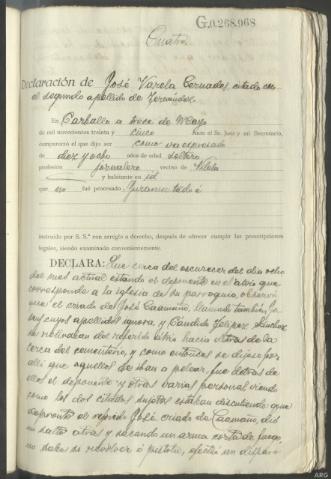 G.0.268.968
Cuatro
Declaración de José Varela Cernadas citado con
el segundo apellido de Fernández
En Carballo a trece de Mayo
de mil novecientos treinta y cinco ante el Sr. Juez y mi Secretario,
compareció el que dijo ser como va expresado
de diez y ocho años de edad soltero
profesión jornalero vecino de
y habitante en id
que no fué procesado Juramentado é
instruído por S. S.ª con arreglo a derecho, después de ofrecer cumplir las prescripciones
legales, siendo examinado convenientemente.
DECLARA: Que cerca del oscurecer del día ocho
del mes actual estando el deponente en el atrio que
corresponde a la iglesia de su parroquia, observó
que el criado del José Caamaño, llamado también José
cuyos apellidos ignora y Candido Sánchez
se retiraban del referido atrio hacia detras de la
cerca del cementerio, y como entonces se dijese por
alli que aquellos se iban a pelear, fue detras de
ellos el deponente y otras varias personas viendo
como los dos citados sujetos estaban discutiendo que
de pronto el referido José criado de Caamaño, dió
un salto atras y sacando un arma corta de fuego,
no sabe si revolver ó pistola, efectuó un disparo
ARG